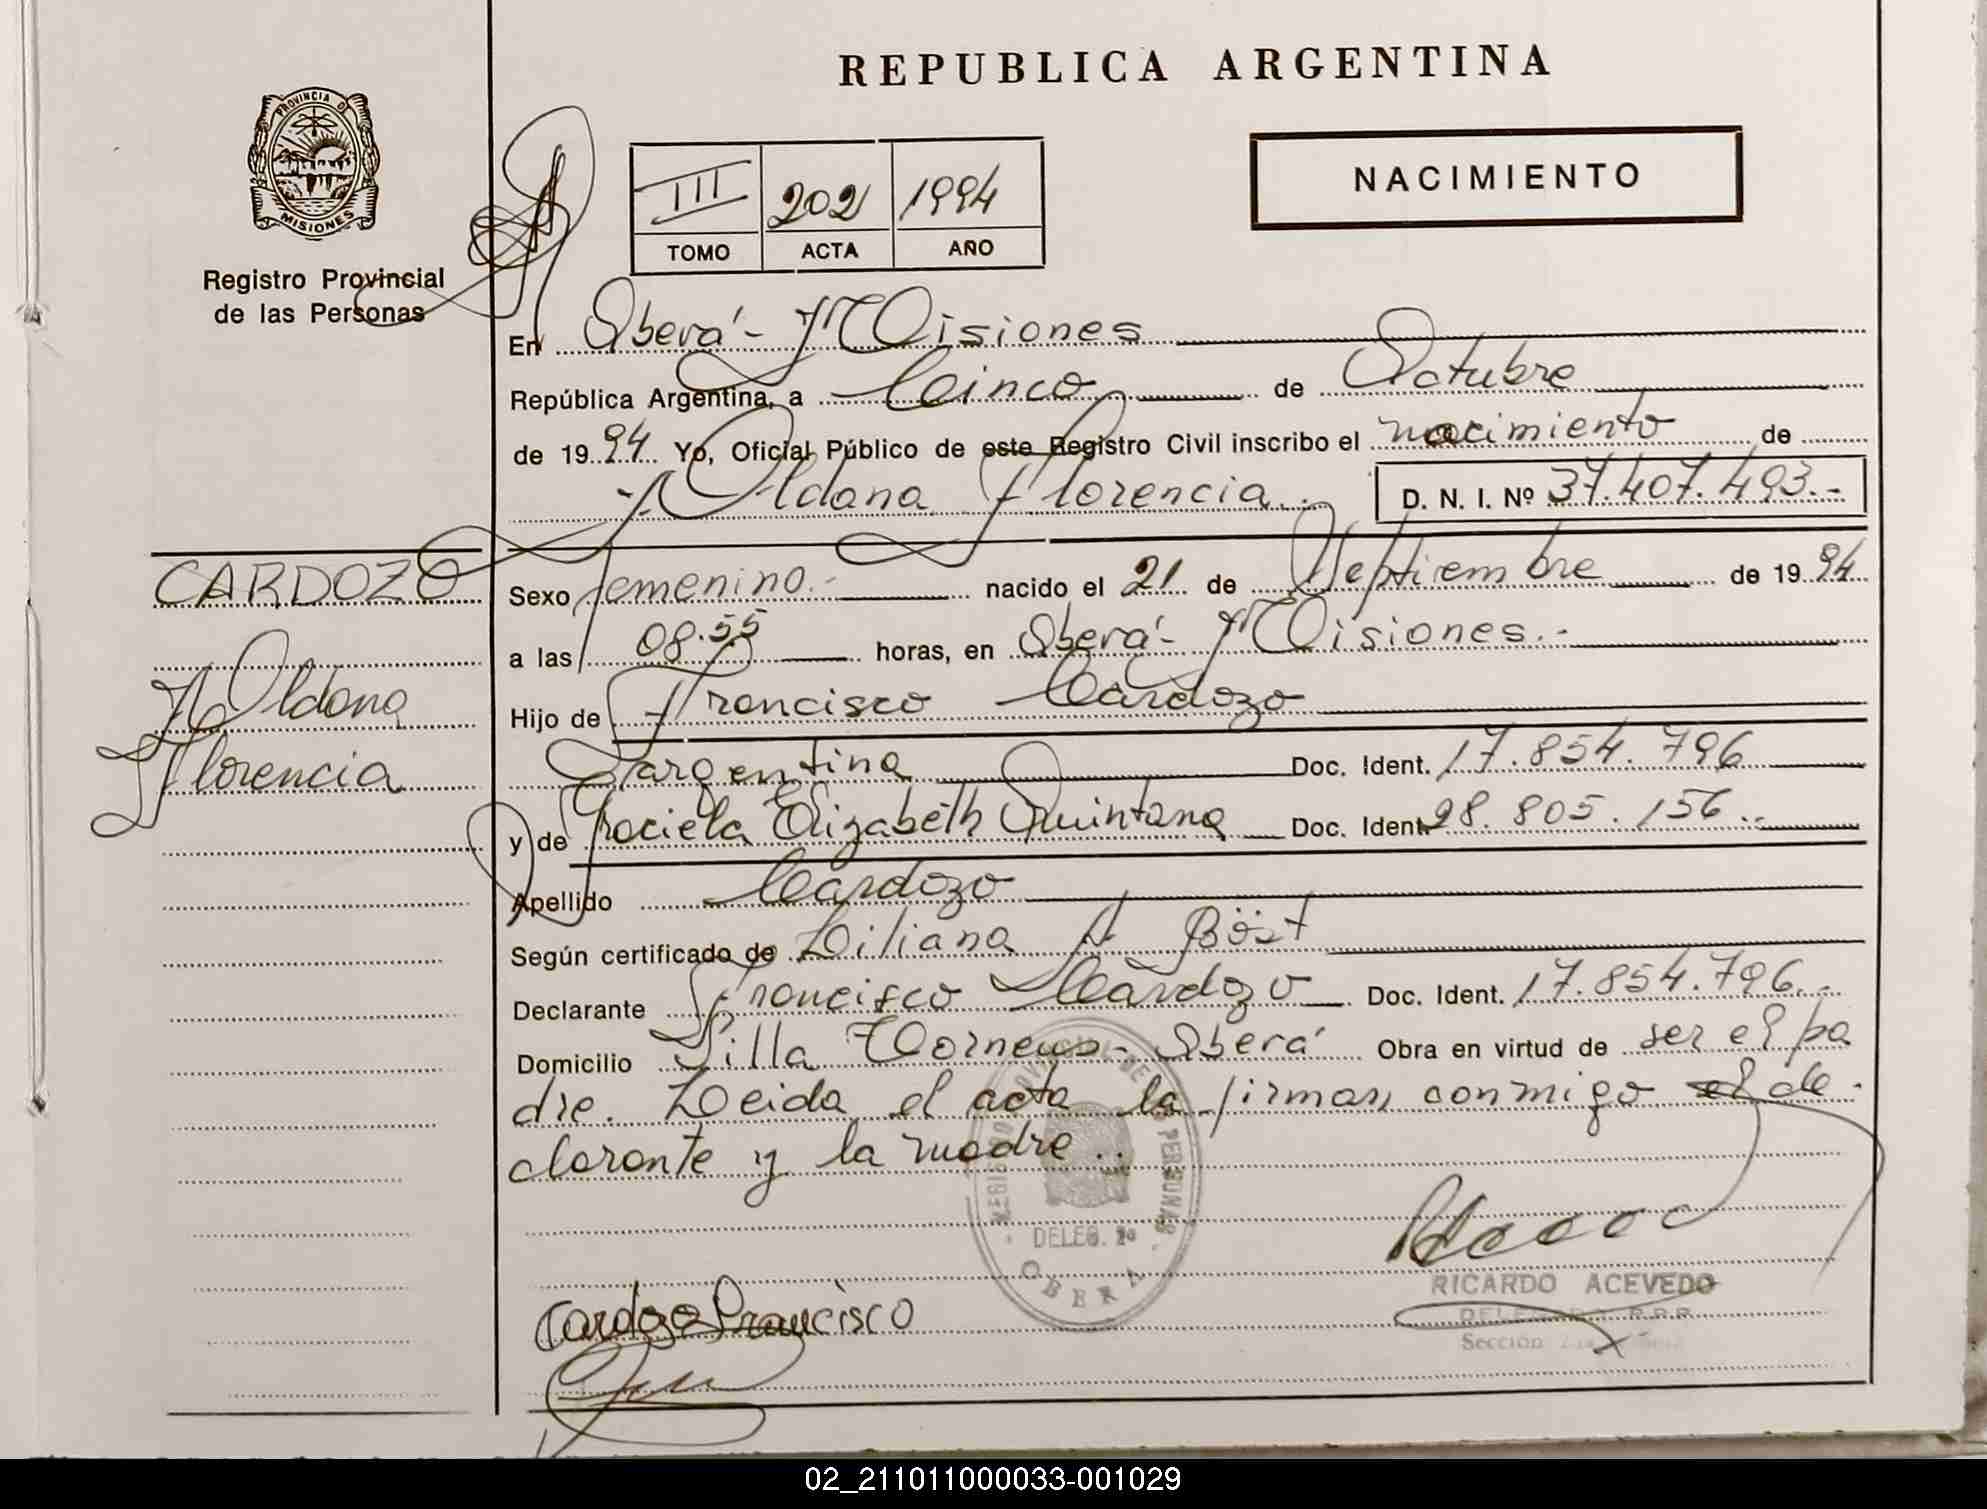 REPUBLICA ARGENTINA
PROVINCIA D
MISIONES
Registro Provincial
de las Personas
III 202 1994
TOMO ACTA AÑO
NACIMIENTO
En Oberá - Misiones
República Argentina, a Cinco de Octubre
de 1994 Yo, Oficial Público de este Registro Civil inscribo el nacimiento de
Aldana Florencia.- D. N. I. Nº 37.407.493.-
CARDOZO
Aldana
Florencia
Sexo femenino.- nacido el 21 de Septiembre de 1994
a las 08.55 horas, en Oberá - Misiones.-
Hijo de Francisco Cardozo
argentina Doc. Ident. 17.854.796
y de Graciela Elizabeth Quintana Doc. Ident. 28.805.156..
Apellido Cardozo
Según certificado de Liliana A Böst
Declarante Francisco Cardozo Doc. Ident. 17.854.796.-
Domicilio Villa - Oberá Obra en virtud de ser el pa
dre. Leida el acta la firman conmigo el de-
clarante y la madre..
REGISTRO PROVINCIAL DE LAS PERSONAS
DELEG. 2ª
OBERA
RICARDO ACEVEDO
DELEGADO R.P.P.
Sección
Cardozo Francisco
02_211011000033-001029